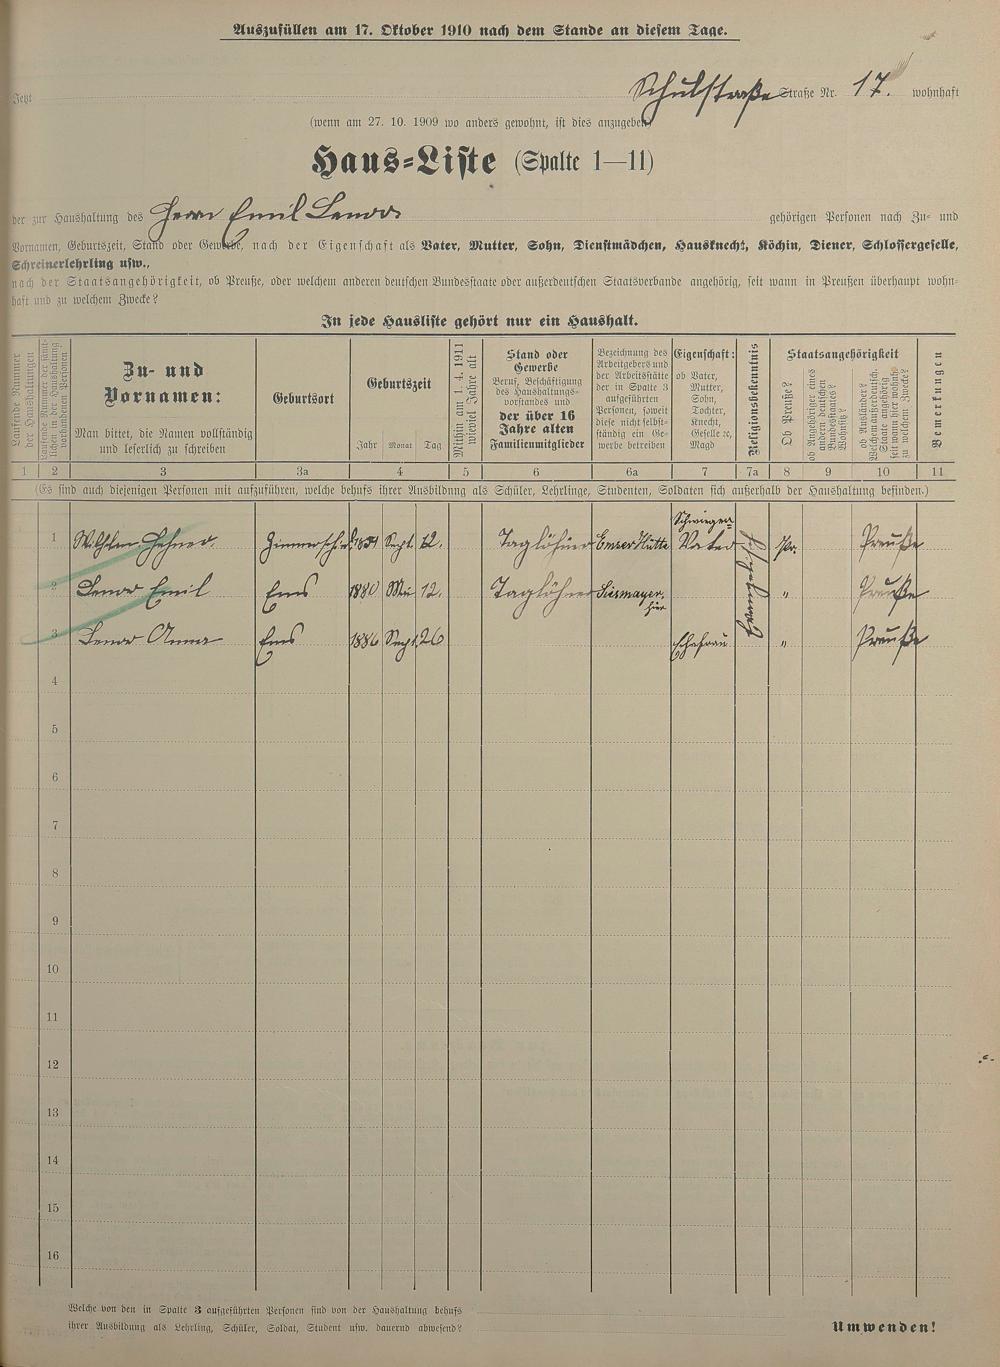 Auszufüllen am 17. Oktober 1910 nach dem Stande an diesem Tage.
Jetzt Schulstraße Straße Nr. 17. wohnhaft
(wenn am 27. 10. 1909 wo anders gewohnt, ist dies anzugeben)
Haus-Liste (Spalte 1—11)
der zur Haushaltung des Herrn Emil Lenor gehörigen Personen nach Zu- und
Vornamen, Geburtszeit, Stand oder Gewerbe, nach der Eigenschaft als Vater, Mutter, Sohn, Dienstmädchen, Hausknecht, Köchin, Diener, Schlossergeselle,
Schreinerlehrling usw.,
nach der Staatsangehörigkeit, ob Preuße, oder welchem anderen deutschen Bundesstaate oder außerdeutschen Staatsverbande angehörig, seit wann in Preußen überhaupt wohn-
haft und zu welchem Zwecke?
In jede Hausliste gehört nur ein Haushalt.
Laufende Nummer der Haushaltungen
Laufende Nummer der sämtlichen in der Haushaltung vorhandenen Personen
Zu- und
Vornamen:
Man bittet, die Namen vollständig
und leserlich zu schreiben
Geburtsort
Geburtszeit
Jahr Monat Tag
Mithin am 1. 4. 1911
wieviel Jahre alt
Stand oder
Gewerbe
Beruf, Beschäftigung
des Haushaltungs-
vorstandes und
der über 16
Jahre alten
Familienmitglieder
Bezeichnung des
Arbeitgebers und
der Arbeitsstätte
der in Spalte 3
aufgeführten
Personen, soweit
diese nicht selbst-
ständig ein Ge-
werbe betreiben
Eigenschaft:
ob Vater,
Mutter,
Sohn,
Tochter,
Knecht,
Geselle ec,
Magd
Religionsbekenntnis
Staatsangehörigkeit
Ob Preuße?
ob Angehöriger eines
andern deutschen
Bundesstaates?
Wohnsitz?
ob Ausländer?
Welchem außerdeutsch.
Staate angehörig
seit wann hier wohnh.
zu welchem Zwecke?
Bemerkungen
1 2 3 3a 4 5 6 6a 7 7a 8 9 10 11
(Es sind auch diejenigen Personen mit aufzuführen, welche behufs ihrer Ausbildung als Schüler, Lehrlinge, Studenten, Soldaten sich außerhalb der Haushaltung befinden.)
Schwieger=
1 Wilhelm Hehner. Sept. 12. Taglöhner Emser Hütte Vater Pr. Preuße
2 Lenor Emil Ems 1880 Mai 12. Taglöhner Süsmayer, hier " Preuße
3 Lenor Anna Ems 1886 Sept. 26 Ehefrau " Preuße
4
5
6
7
8
9
10
11
12
13
14
15
16
Welche von den in Spalte 3 aufgeführten Personen sind von der Haushaltung behufs
ihrer Ausbildung als Lehrling, Schüler, Soldat, Student usw. dauernd abwesend?
Umwenden!